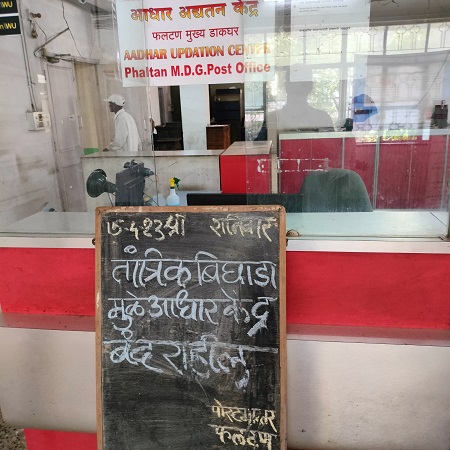 आधार अद्यतन केंद्र
फलटण मुख्य डाकघर
AADHAR UPDATION CENTER
Phaltan M.D.G.Post Office
शनिवार
तांत्रिक बिघाडा
मुळे आधार केंद्र
बंद राहील
पोस्टमास्तर
फलटण